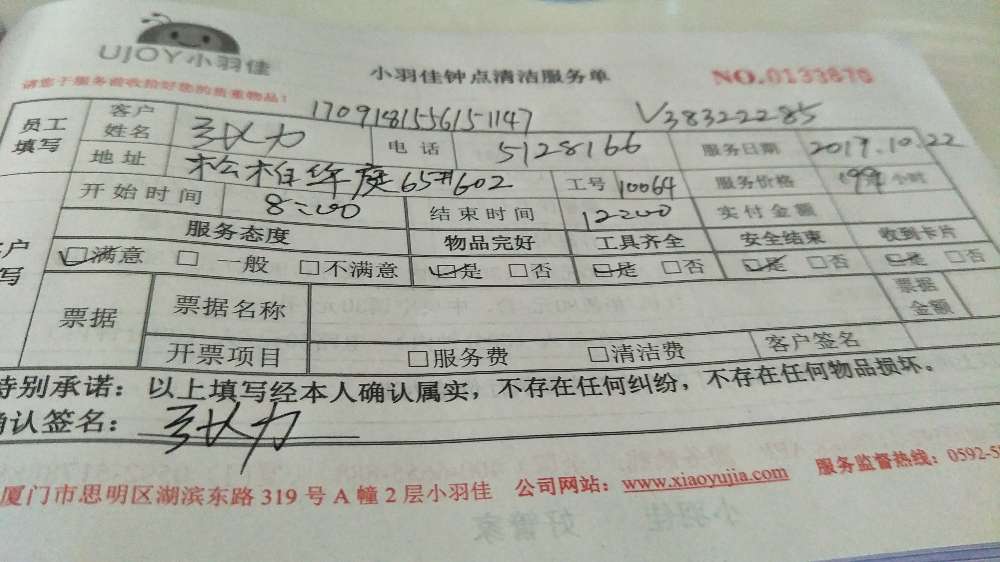 UJOY小羽佳
小羽佳钟点清洁服务单
NO.0133876
请您于服务前收拾好您的贵重物品！
170918155615 1147 V38322285
员工填写 客户姓名 张力 电话 5128166 服务日期 2017.10.22
地址 松柏华庭65#602 工号 10064 服务价格 小时
开始时间 8:00 结束时间 12:00 实付金额
服务态度 物品完好 工具齐全 安全结束 收到卡片
满意 一般 不满意 是 否 是 否 是 否 是 否
票据 票据名称 票据金额
开票项目 服务费 清洁费 客户签名
特别承诺：以上填写经本人确认属实，不存在任何纠纷，不存在任何物品损坏。
确认签名：张力
厦门市思明区湖滨东路319号A幢2层小羽佳 公司网站：www.xiaoyujia.com 服务监督热线：0592-5
小羽佳 好管家